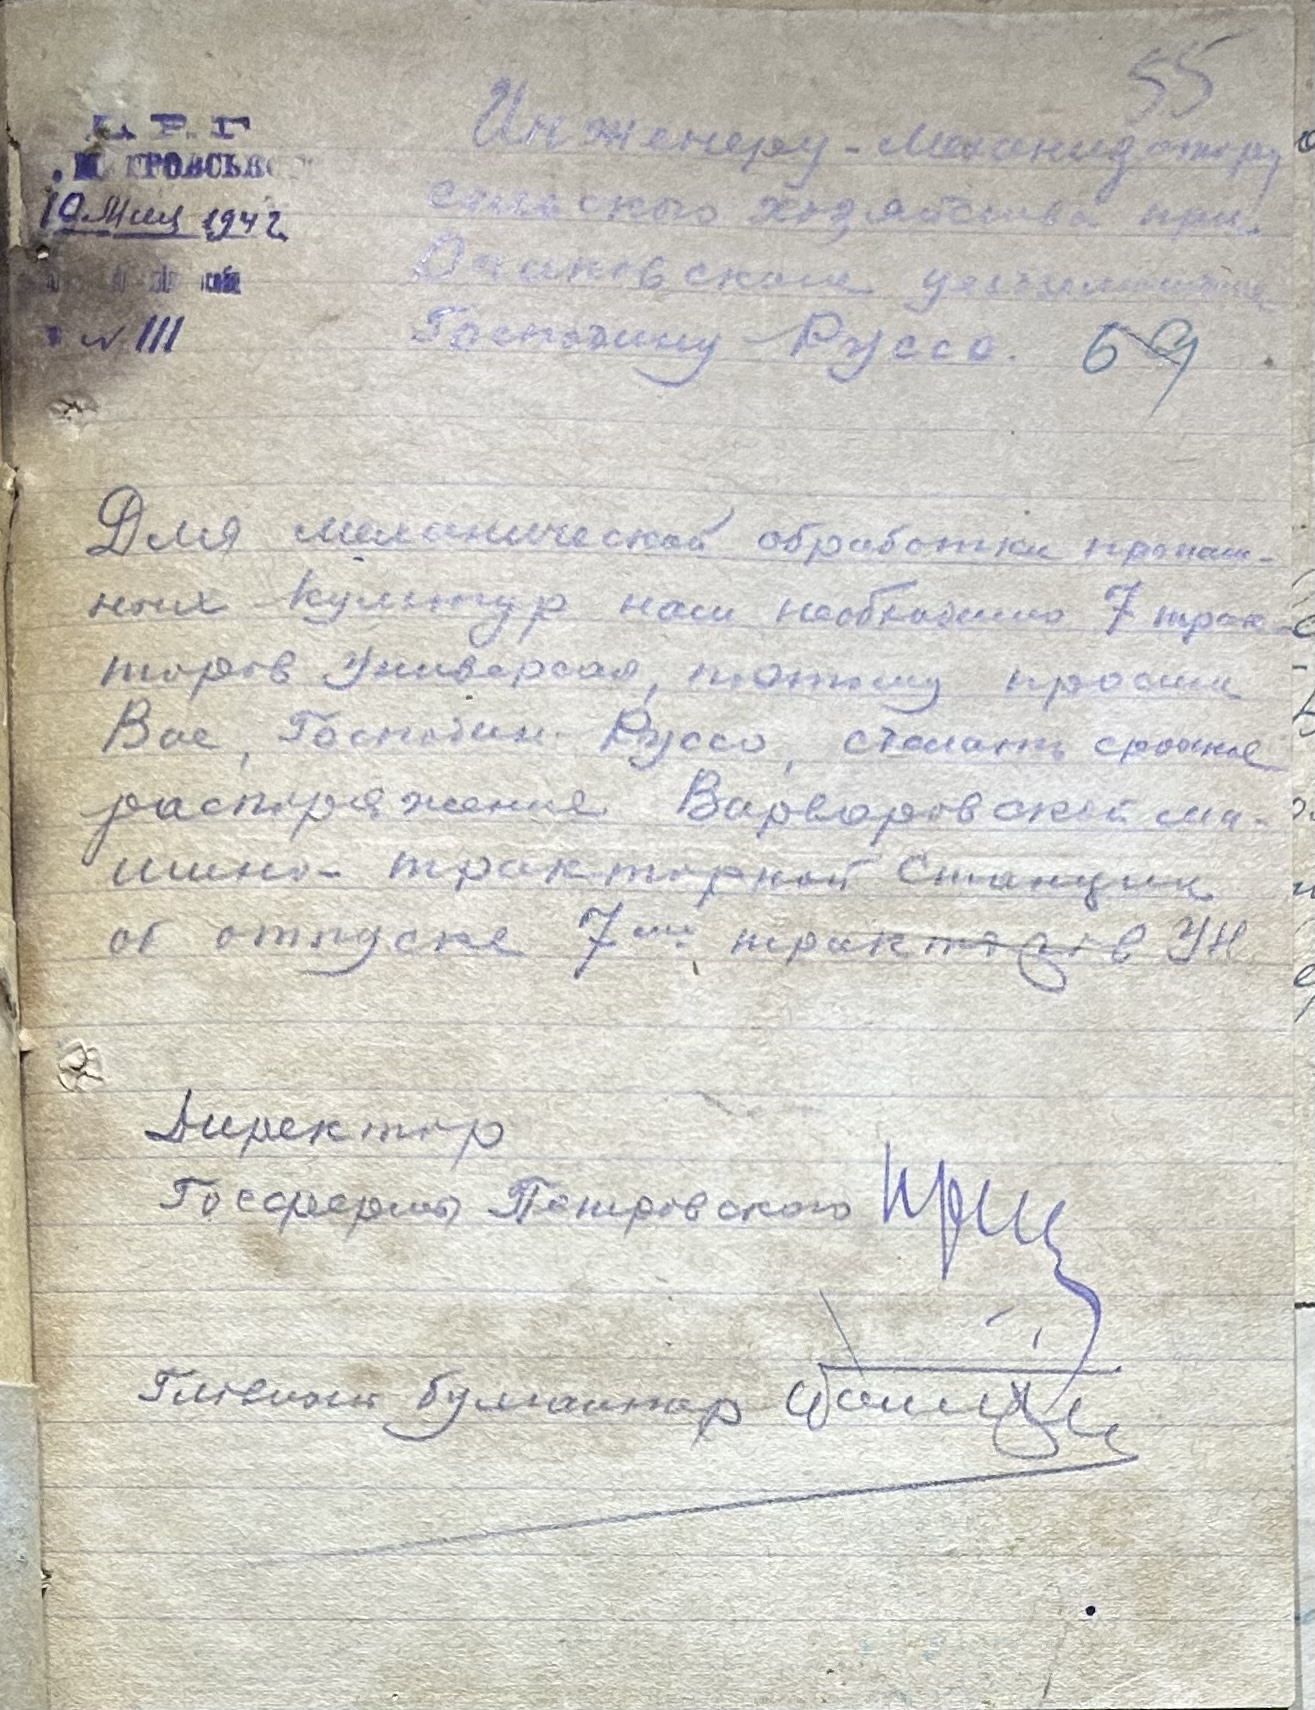 55
Инженеру-Механизатору
сельского хозяйства при
Очаковском
Господину Руссо. 69
10 Мая 1942
№ 111
Для механической обработки пропаш-
ных культур нам необходимо 7 трак-
торов Универсал, потому просим
Вас, Господин Руссо, сделать срочное
распоряжение Варваровской ма-
шино-тракторной Станции
об отпуске 7ми тракторов УН
Директор
Госфермы Петровского
Главный бухгалтер